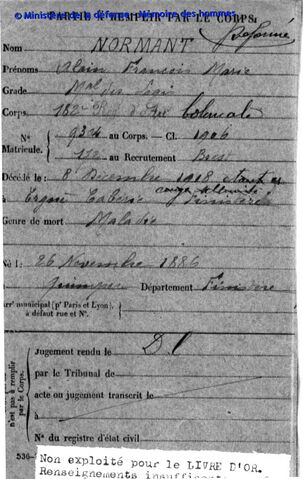 © Ministère de la défense - Mémoire des hommes
PARTIE À REMPLIR PAR LE CORPS.
Nom NORMANT
Prénoms Alain François Marie
Grade Mal des Logis
Corps 182e Rgt d'Art Coloniale
N° 9324 au Corps. - Cl. 1906
Matricule. 112 au Recrutement Brest
Décédé le 8 Décembre 1918 étant en
congé
à Ergué Gabéric Finistère
Genre de mort Maladie
Né le 26 Novembre 1886
à Quimper Département Finistère
Arrt municipal (pr Paris et Lyon),
à défaut rue et N°.
n'est pas à remplir
par le Corps.
Jugement rendu le
par le Tribunal de
acte ou jugement transcrit le
à
N° du registre d'état civil
536-
Non exploité pour le LIVRE D'OR.
Renseignements insuffisants